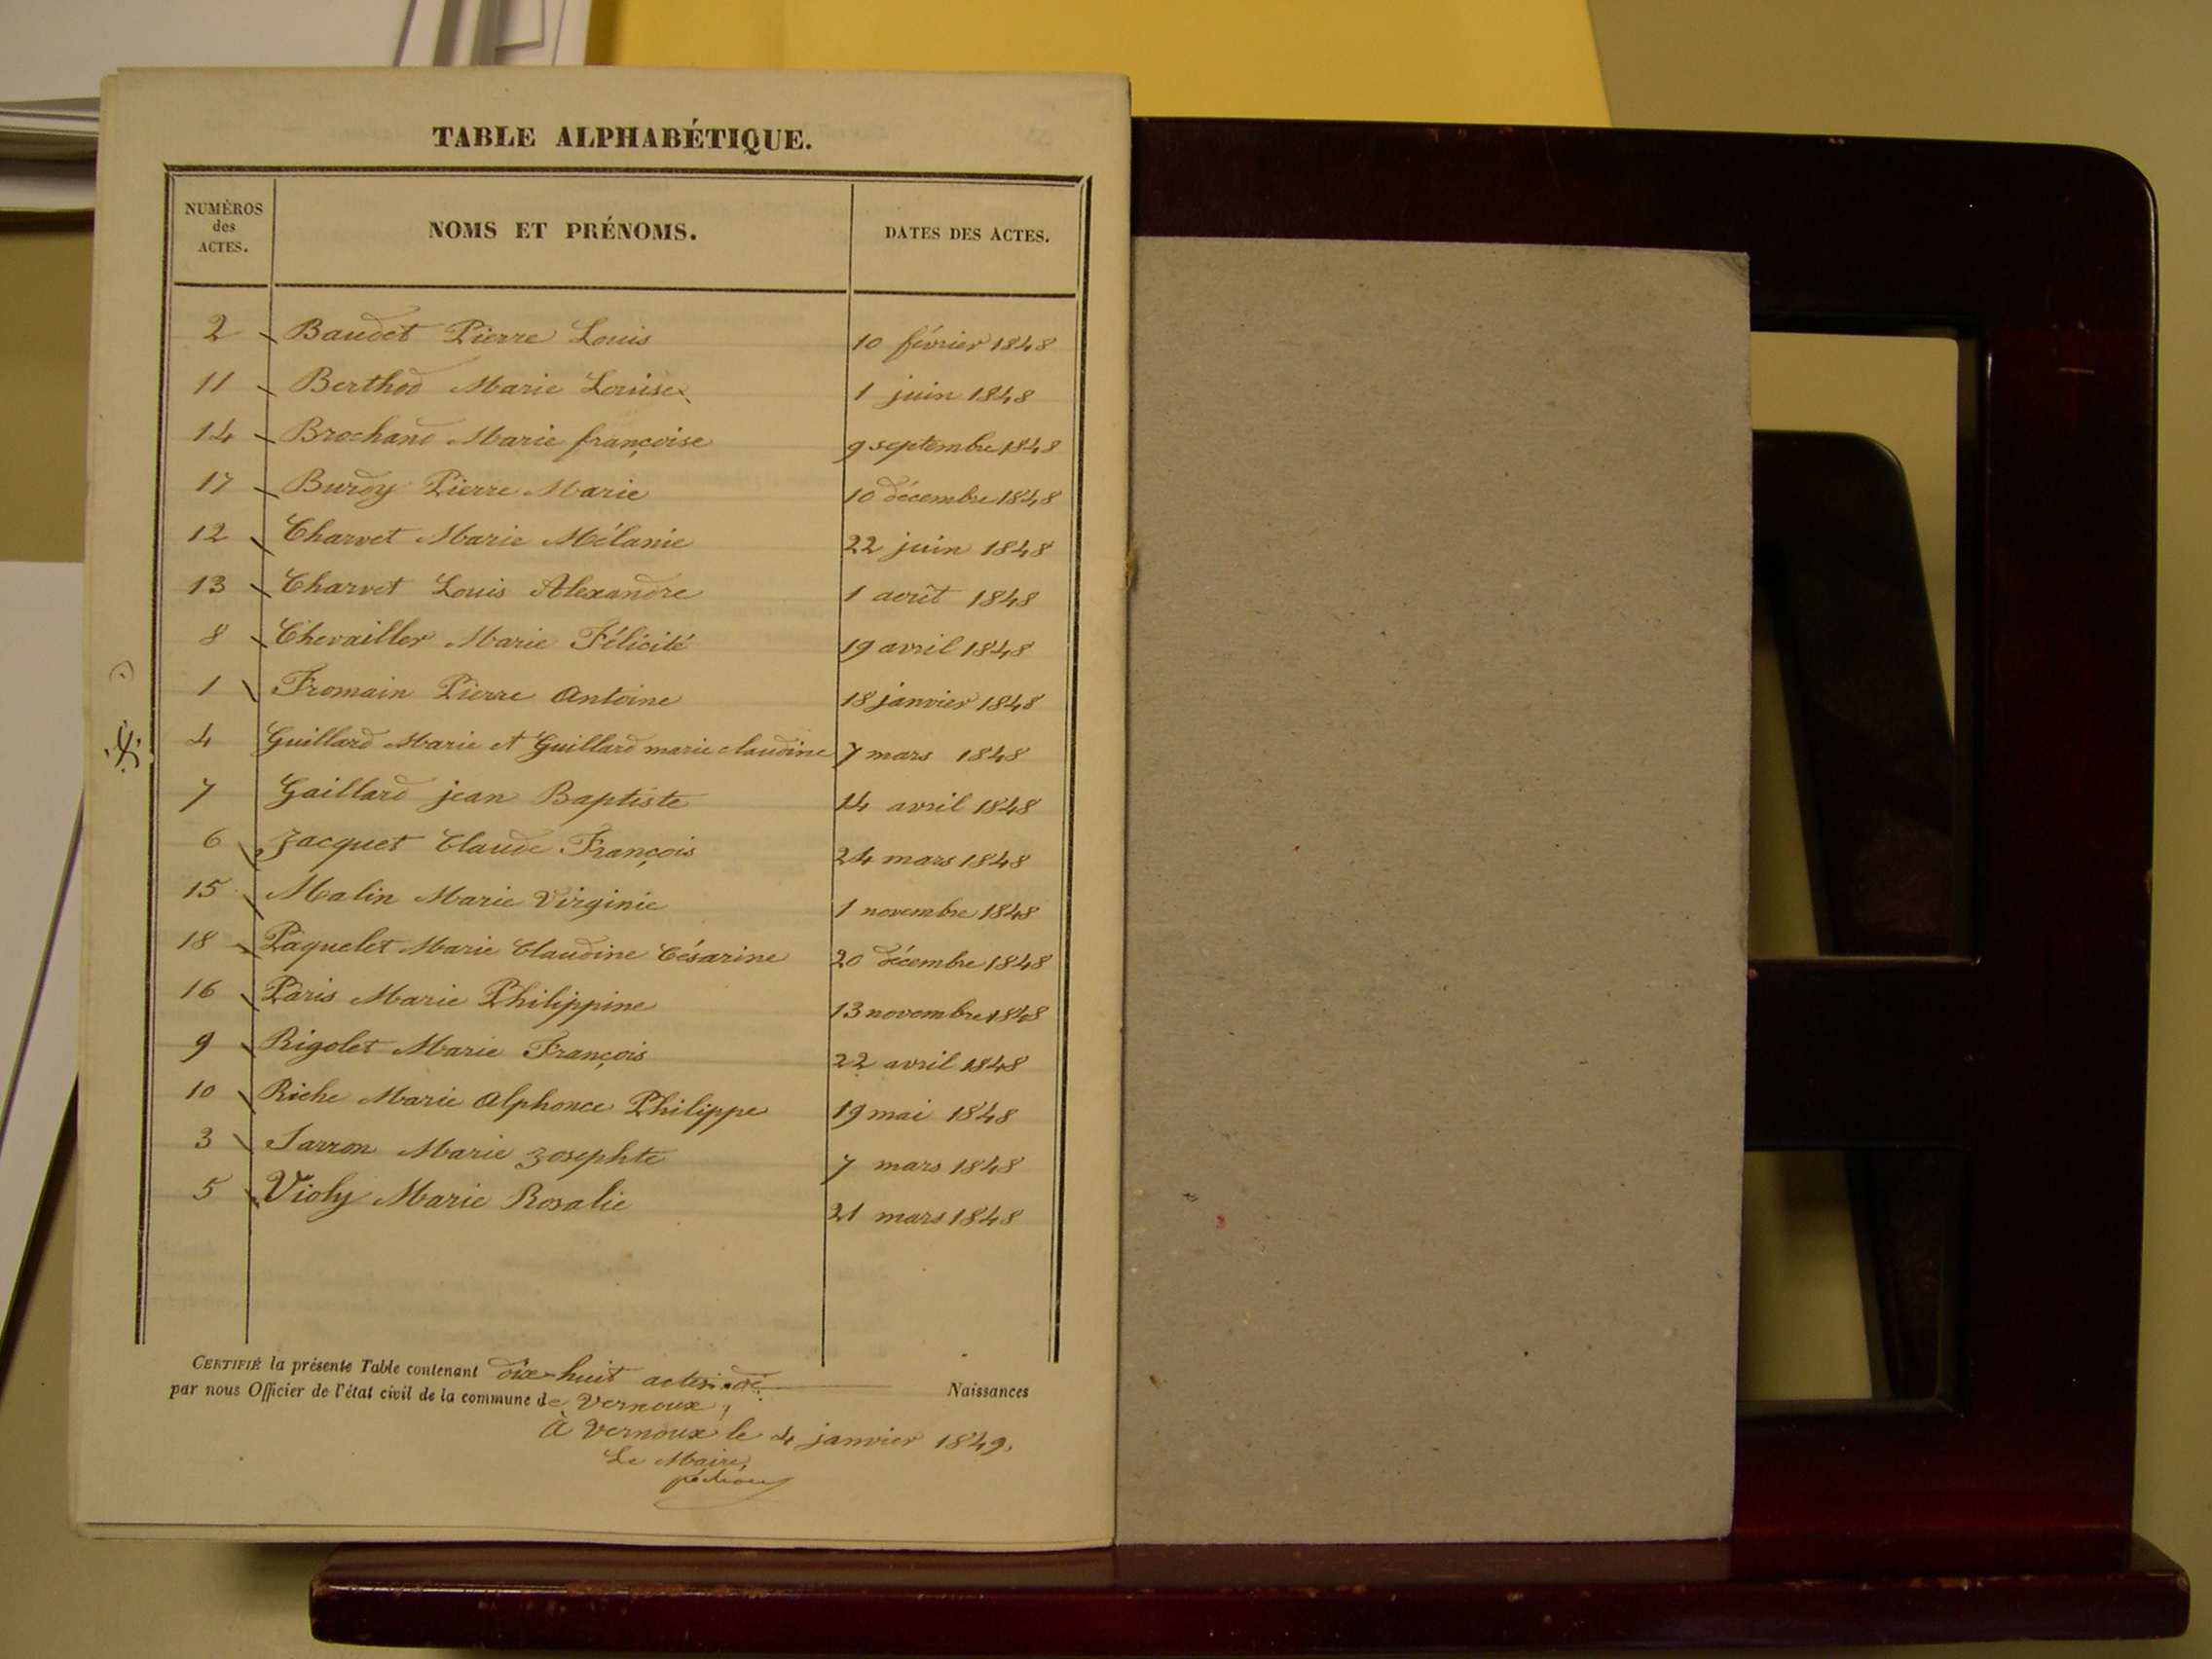 TABLE ALPHABÉTIQUE.
NUMÉROS des ACTES. NOMS ET PRÉNOMS. DATES DES ACTES.
2 Baudet Pierre Louis 10 février 1848
11 Berthod Marie Louise 1 juin 1848
14 Brochand Marie françoise 9 septembre 1848
17 Burdy Pierre Marie 10 décembre 1848
12 Charvet Marie Mélanie 22 juin 1848
13 Charvet Louis Alexandre 1 août 1848
8 Chevailler Marie Félicité 19 avril 1848
1 Fromain Pierre Antoine 18 janvier 1848
4 Guillard Marie et Guillard marie claudine 7 mars 1848
7 Gaillard jean Baptiste 14 avril 1848
6 Jacquet Claude François 24 mars 1848
15 Malin Marie Virginie 1 novembre 1848
18 Paquelet Marie Claudine Césarine 20 décembre 1848
16 Pâris Marie Philippine 13 novembre 1848
9 Rigolet Marie François 22 avril 1848
10 Riche Marie Alphonce Philippe 19 mai 1848
3 Sarron Marie Josephte 7 mars 1848
5 Violy Marie Rosalie 21 mars 1848
CERTIFIÉ la présente Table contenant dix-huit actes de Naissances
par nous Officier de l'état civil de la commune de Vernoux,
À Vernoux le 4 janvier 1849.
Le Maire,